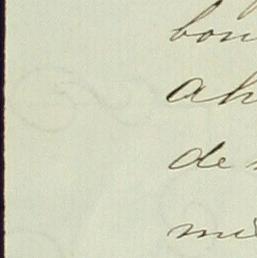 bon
ah
de
mi